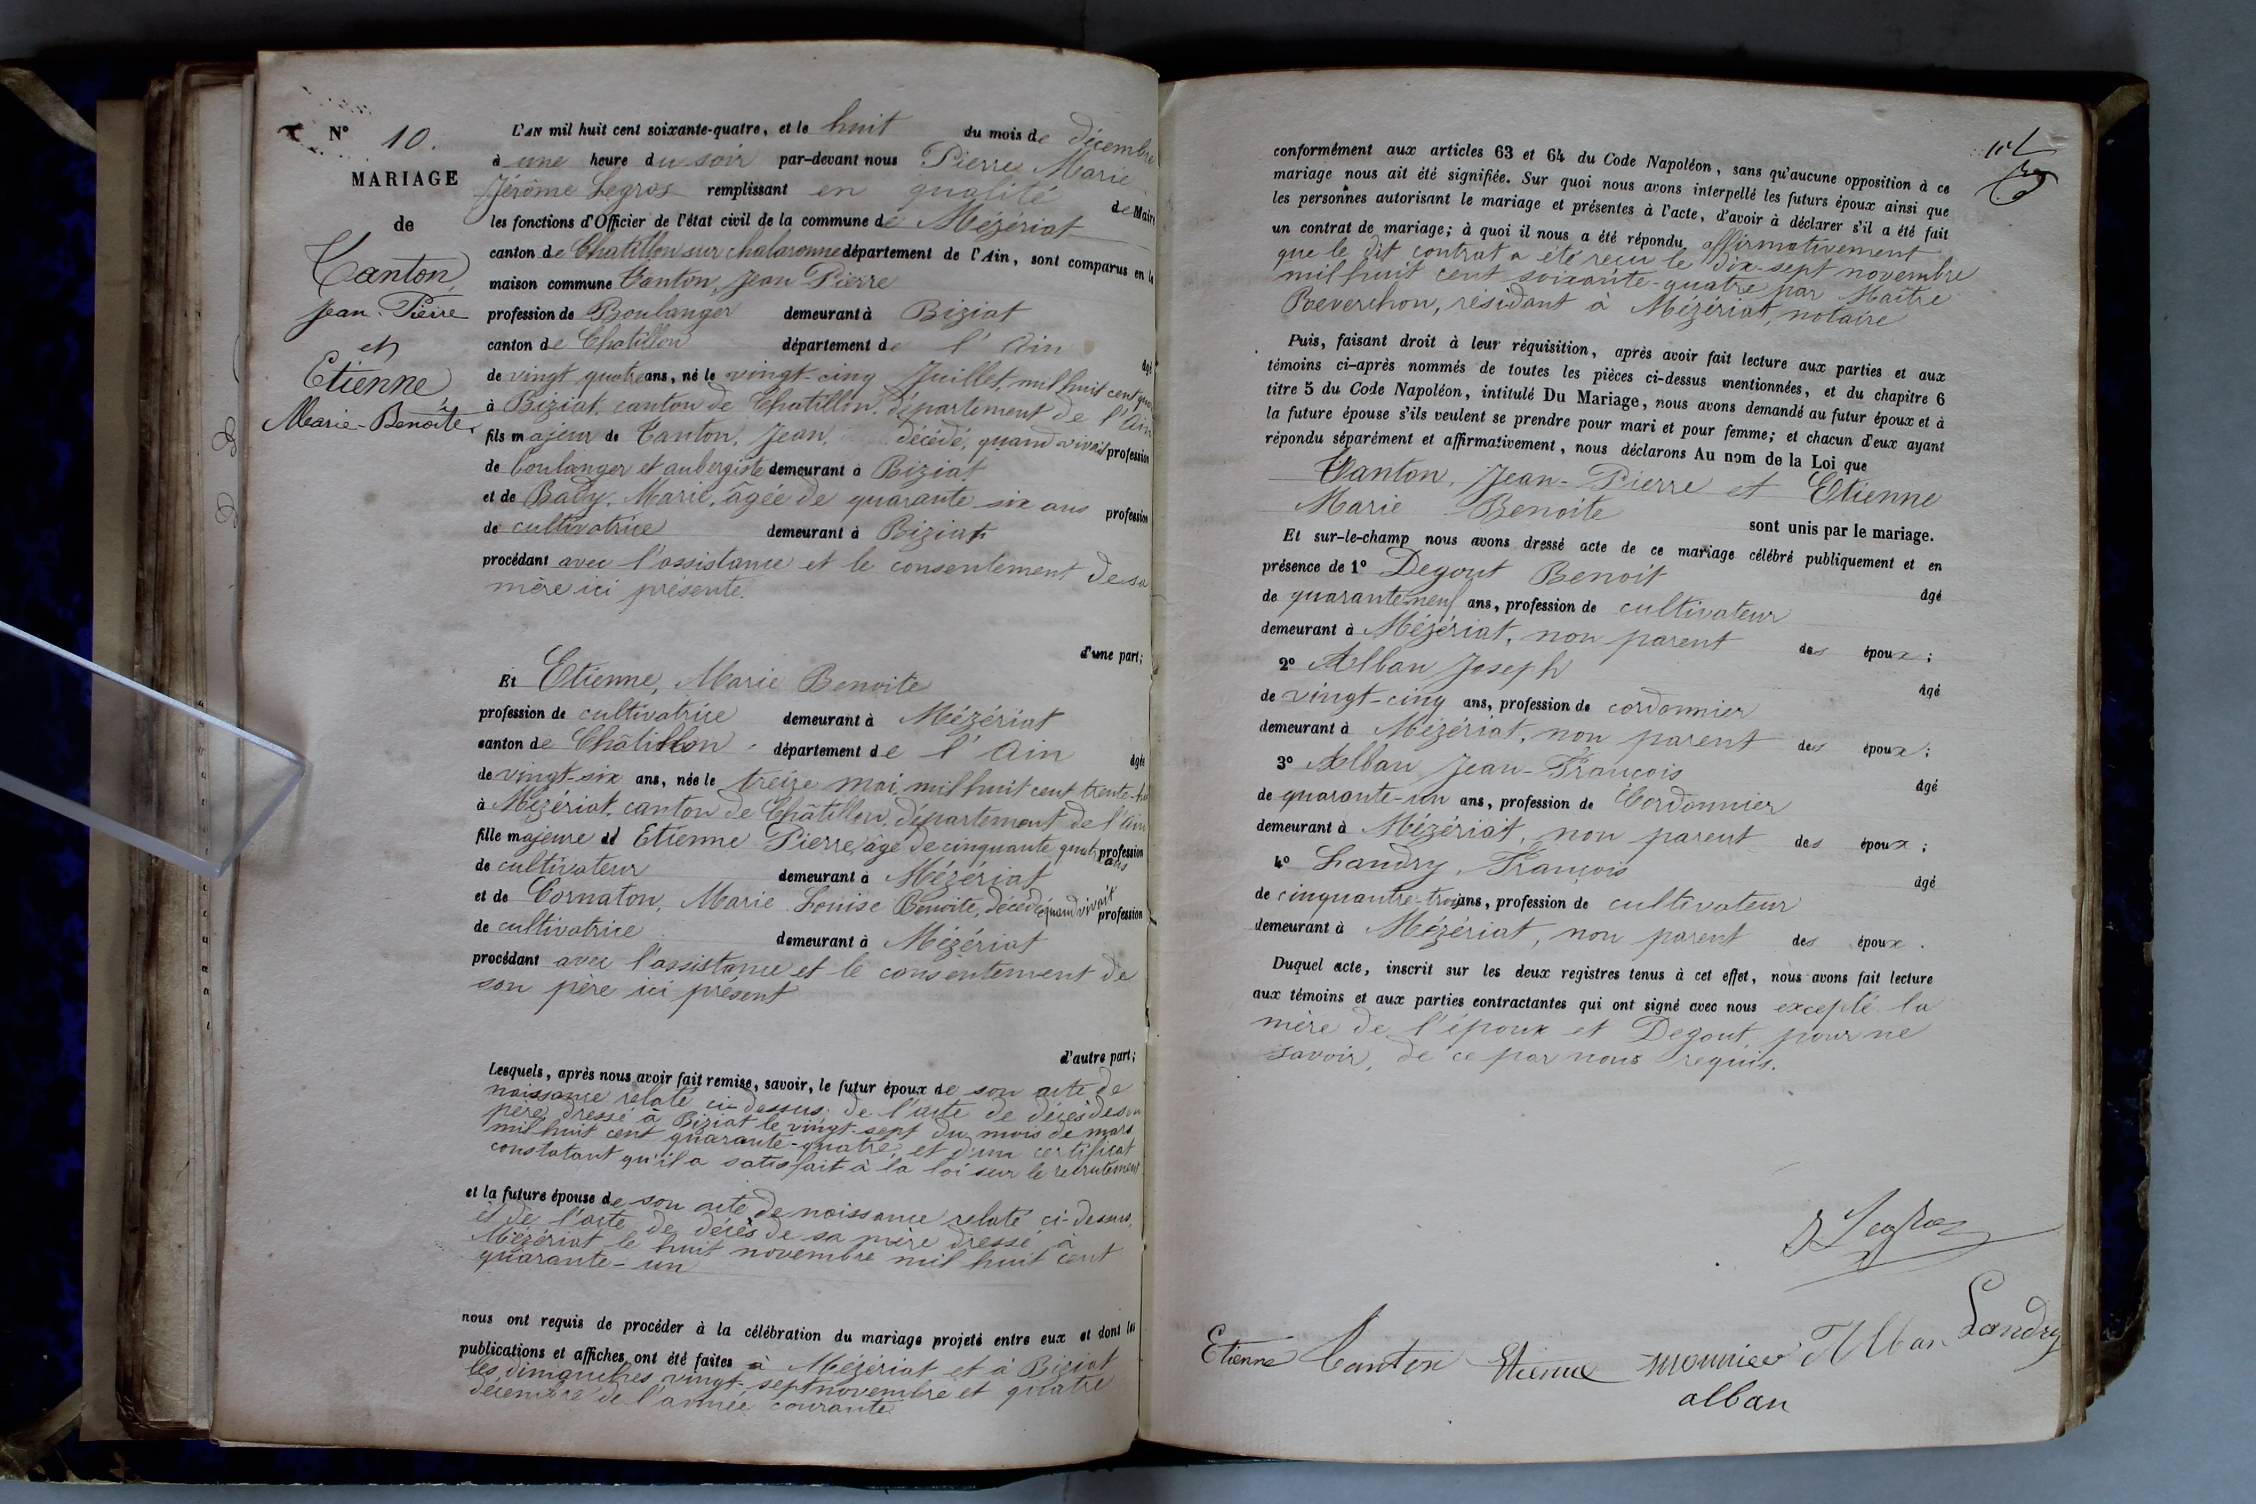 N° 10.
MARIAGE
de
Canton,
Jean-Pierre
et
Etienne
Marie-Benoite.
L'AN mil huit cent soixante-quatre, et le huit du mois de décembre
à une heure du soir par-devant nous Pierre Marie
Jérôme Legros remplissant en qualité de Maire
les fonctions d'Officier de l'état civil de la commune de Mézériat
canton de Chatillon sur chalaronne département de l'Ain, sont comparus en la
maison commune Canton, Jean Pierre
profession de Boulanger demeurant à Biziat
canton de Chatillon département de l'Ain âgé
de vingt quatre ans, né le vingt-cinq Juillet, mil huit cent
à Biziat, canton de Chatillon, département de l'Ain
fils majeur de Canton, Jean, décédé, quand vivait profession
de boulanger et aubergiste demeurant à Biziat
et de Bady, Marie, âgée de quarante six ans profession
de cultivatrice demeurant à Biziat
procédant avec l'assistance et le consentement de sa
mère ici présente.
d'une part;
Et Etienne, Marie Benoite
profession de cultivatrice demeurant à Mézériat
canton de Châtillon département de l'Ain âgée
de vingt-six ans, née le treize mai, mil huit cent trente-huit
à Mézériat, canton de Châtillon, département de l'Ain
fille majeure d Etienne Pierre, âgé de cinquante quatre ans profession
de cultivateur demeurant à Mézériat
et de Cornaton, Marie Louise Benoite, décédé quand vivait profession
de cultivatrice demeurant à Mézériat
procédant avec l'assistance et le consentement de
son père ici présent
d'autre part;
Lesquels, après nous avoir fait remise, savoir, le futur époux de son acte de
naissance relaté ci-dessus, de l'acte de décès de son
père dressé à Biziat le vingt-sept du mois de mars
mil huit cent quarante-quatre, et d'un certificat
constatant qu'il a satisfait à la loi sur le recrutement
et la future épouse de son acte de naissance relaté ci-dessus,
et de l'acte de décès de sa mère dressé à
Mézériat le huit novembre mil huit cent
quarante-un
nous ont requis de procéder à la célébration du mariage projeté entre eux et dont les
publications et affiches ont été faites à Mézériat et à Biziat
les dimanches, vingt-sept novembre et quatre
décembre de l'année courante.
conformément aux articles 63 et 64 du Code Napoléon, sans qu'aucune opposition à ce
mariage nous ait été signifiée. Sur quoi nous avons interpellé les futurs époux ainsi que
les personnes autorisant le mariage et présentes à l'acte, d'avoir à déclarer s'il a été fait
un contrat de mariage; à quoi il nous a été répondu affirmativement
que le dit contrat a été reçu le dix-sept novembre
mil huit cent soixante-quatre par Maître
Reverchon, résidant à Mézériat, notaire
Puis, faisant droit à leur réquisition, après avoir fait lecture aux parties et aux
témoins ci-après nommés de toutes les pièces ci-dessus mentionnées, et du chapitre 6
titre 5 du Code Napoléon, intitulé Du Mariage, nous avons demandé au futur époux et à
la future épouse s'ils veulent se prendre pour mari et pour femme; et chacun d'eux ayant
répondu séparément et affirmativement, nous déclarons Au nom de la Loi que
Canton, Jean-Pierre et Etienne
Marie Benoite sont unis par le mariage.
Et sur-le-champ nous avons dressé acte de ce mariage célébré publiquement et en
présence de 1° Degout Benoit âgé
de quarante-neuf ans, profession de cultivateur
demeurant à Mézériat, non parent des époux;
2° Alban Joseph âgé
de vingt-cinq ans, profession de cordonnier
demeurant à Mézériat, non parent des époux;
3° Alban Jean-François âgé
de quarante-un ans, profession de Cordonnier
demeurant à Mézériat, non parent des époux;
4° Landry, François âgé
de cinquante-trois ans, profession de cultivateur
demeurant à Mézériat, non parent des époux.
Duquel acte, inscrit sur les deux registres tenus à cet effet, nous avons fait lecture
aux témoins et aux parties contractantes qui ont signé avec nous excepté la
mère de l'époux et Degout pour ne
savoir, de ce par nous requis.
J Legros
Etienne Canton Etienne monnier Alban Landry
alban